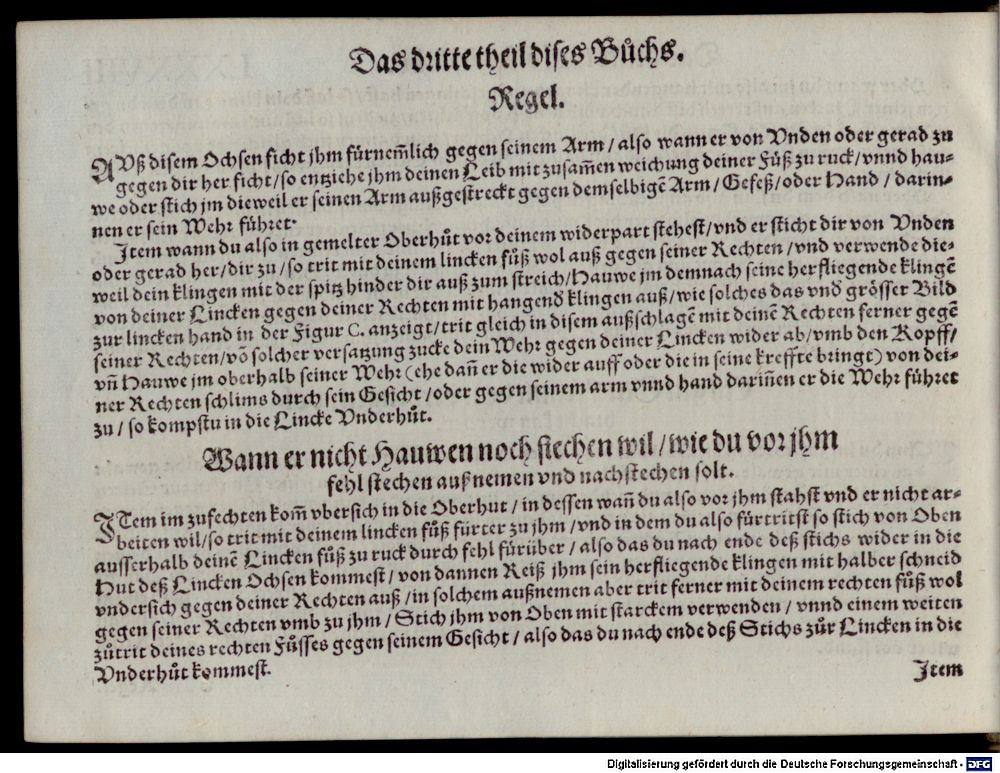 Das dritte theil dises Bůchs.
Regel.
AUß disem Ochsen ficht jhm fürnem̃lich gegen seinem Arm / also wann er von Vnden oder gerad zu
gegen dir her ficht / so entziehe jhm deinen Leib mit zusam̃en weichung deiner Füß zu ruck / vnnd hau-
we oder stich jm dieweil er seinen Arm außgestreckt gegen demselbigẽ Arm / Gefeß / oder Hand / darin-
nen er sein Wehr führet.
Item wann du also in gemelter Oberhůt vor deinem widerpart stehest / vnd er sticht dir von Vnden
oder gerad her / dir zu / so trit mit deinem lincken fůß wol auß gegen seiner Rechten / vnd verwende die-
weil dein klingen mit der spitz hinder dir auß zum streich / Hauwe jm demnach seine herfliegende klingẽ
von deiner Lincken gegen deiner Rechten mit hangend klingen auß / wie solches das vnd grösser Bild
zur lincken hand in der Figur C. anzeigt / trit gleich in disem außschlagẽ mit deinẽ Rechten ferner gegẽ
seiner Rechten / võ solcher versatzung zucke dein Wehr gegen deiner Lincken wider ab / vmb den Kopff /
vñ Hauwe jm oberhalb seiner Wehr (ehe dañ er die wider auff oder die in seine kreffte bringt) von dei-
ner Rechten schlims durch sein Gesicht / oder gegen seinem arm vnnd hand dariñen er die Wehr führet
zu / so kompstu in die Lincke Vnderhůt.
Wann er nicht Hauwen noch stechen wil / wie du vor jhm
fehl stechen außnemen vnd nachstechen solt.
ITem im zufechten kom̃ vbersich in die Oberhut / in dessen wañ du also vor jhm stahst vnd er nicht ar-
beiten wil / so trit mit deinem lincken fůß fürter zu jhm / vnd in dem du also fürtritst so stich von Oben
ausserhalb deinẽ Lincken fůß zu ruck durch fehl fürüber / also das du nach ende deß stichs wider in die
Hut deß Lincken Ochsen kommest / von dannen Reiß jhm sein herfliegende klingen mit halber schneid
vndersich gegen deiner Rechten auß / in solchem außnemen aber trit ferner mit deinem rechten fůß wol
gegen seiner Rechten vmb zu jhm / Stich jhm von Oben mit starckem verwenden / vnnd einem weiten
zůtrit deines rechten Fůsses gegen seinem Gesicht / also das du nach ende deß Stichs zůr Lincken in die
Vnderhůt kommest.
Item
Digitalisierung gefördert durch die Deutsche Forschungsgemeinschaft - DFG